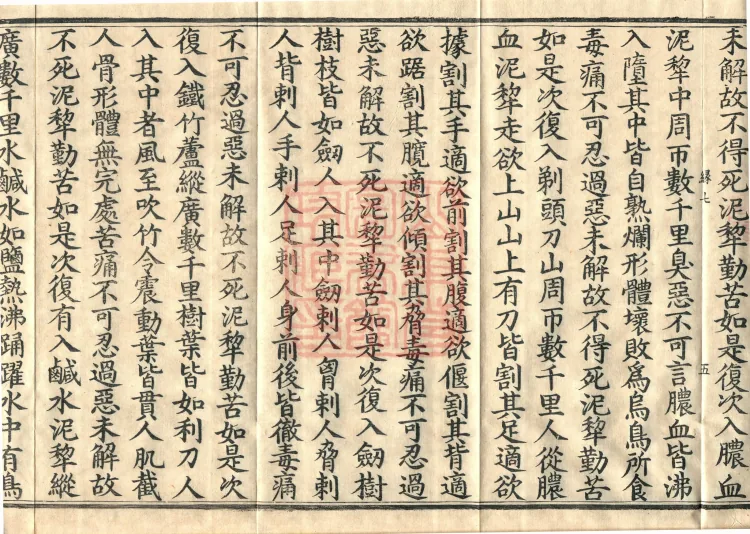 未解故不得死泥犂勤苦如是復次入膿血
泥犂中周帀數千里臭惡不可言膿血皆沸
入墮其中皆自熟爛形體壞敗爲烏鳥所食
毒痛不可忍過惡未解故不得死泥犂勤苦
如是次復入剃頭刀山周帀數千里人從膿
血泥犂走欲上山山上有刀皆割其足適欲
據割其手適欲前割其腹適欲偃割其背適
欲踞割其臗適欲傾割其脅毒痛不可忍過
惡未解故不死泥犂勤苦如是次復入劒樹
樹枝皆如劒人入其中劒刺人胷刺人脅刺
人背刺人手刺人足刺人身前後皆徹毒痛
不可忍過惡未解故不死泥犂勤苦如是次
復入鐵竹蘆縱廣數千里樹葉皆如利刀人
入其中者風至吹竹令震動葉皆貫人肌截
人骨形體無完處苦痛不可忍過惡未解故
不死泥犂勤苦如是次復有入鹹水泥犂縱
廣數千里水鹹水如鹽熱沸踊躍水中有鳥
五